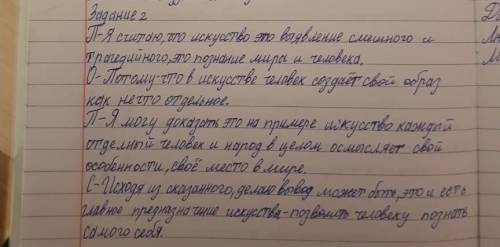 Задание 2
П-Я считаю, что искусство это выявление смешного и
трагедийного, это познание мира и человека.
О-Потому-что в искусстве человек создаёт свой образ
как нечто отдельное.
П-Я могу доказать это на примере искусство каждый
отдельный человек и народ в целом осмысляет свой
особенности, своё место в мире.
С-Исходя из сказанного, делаю вывод может быть, это и есть
главное предназначение искусства-позволить человеку познать
самого себя.